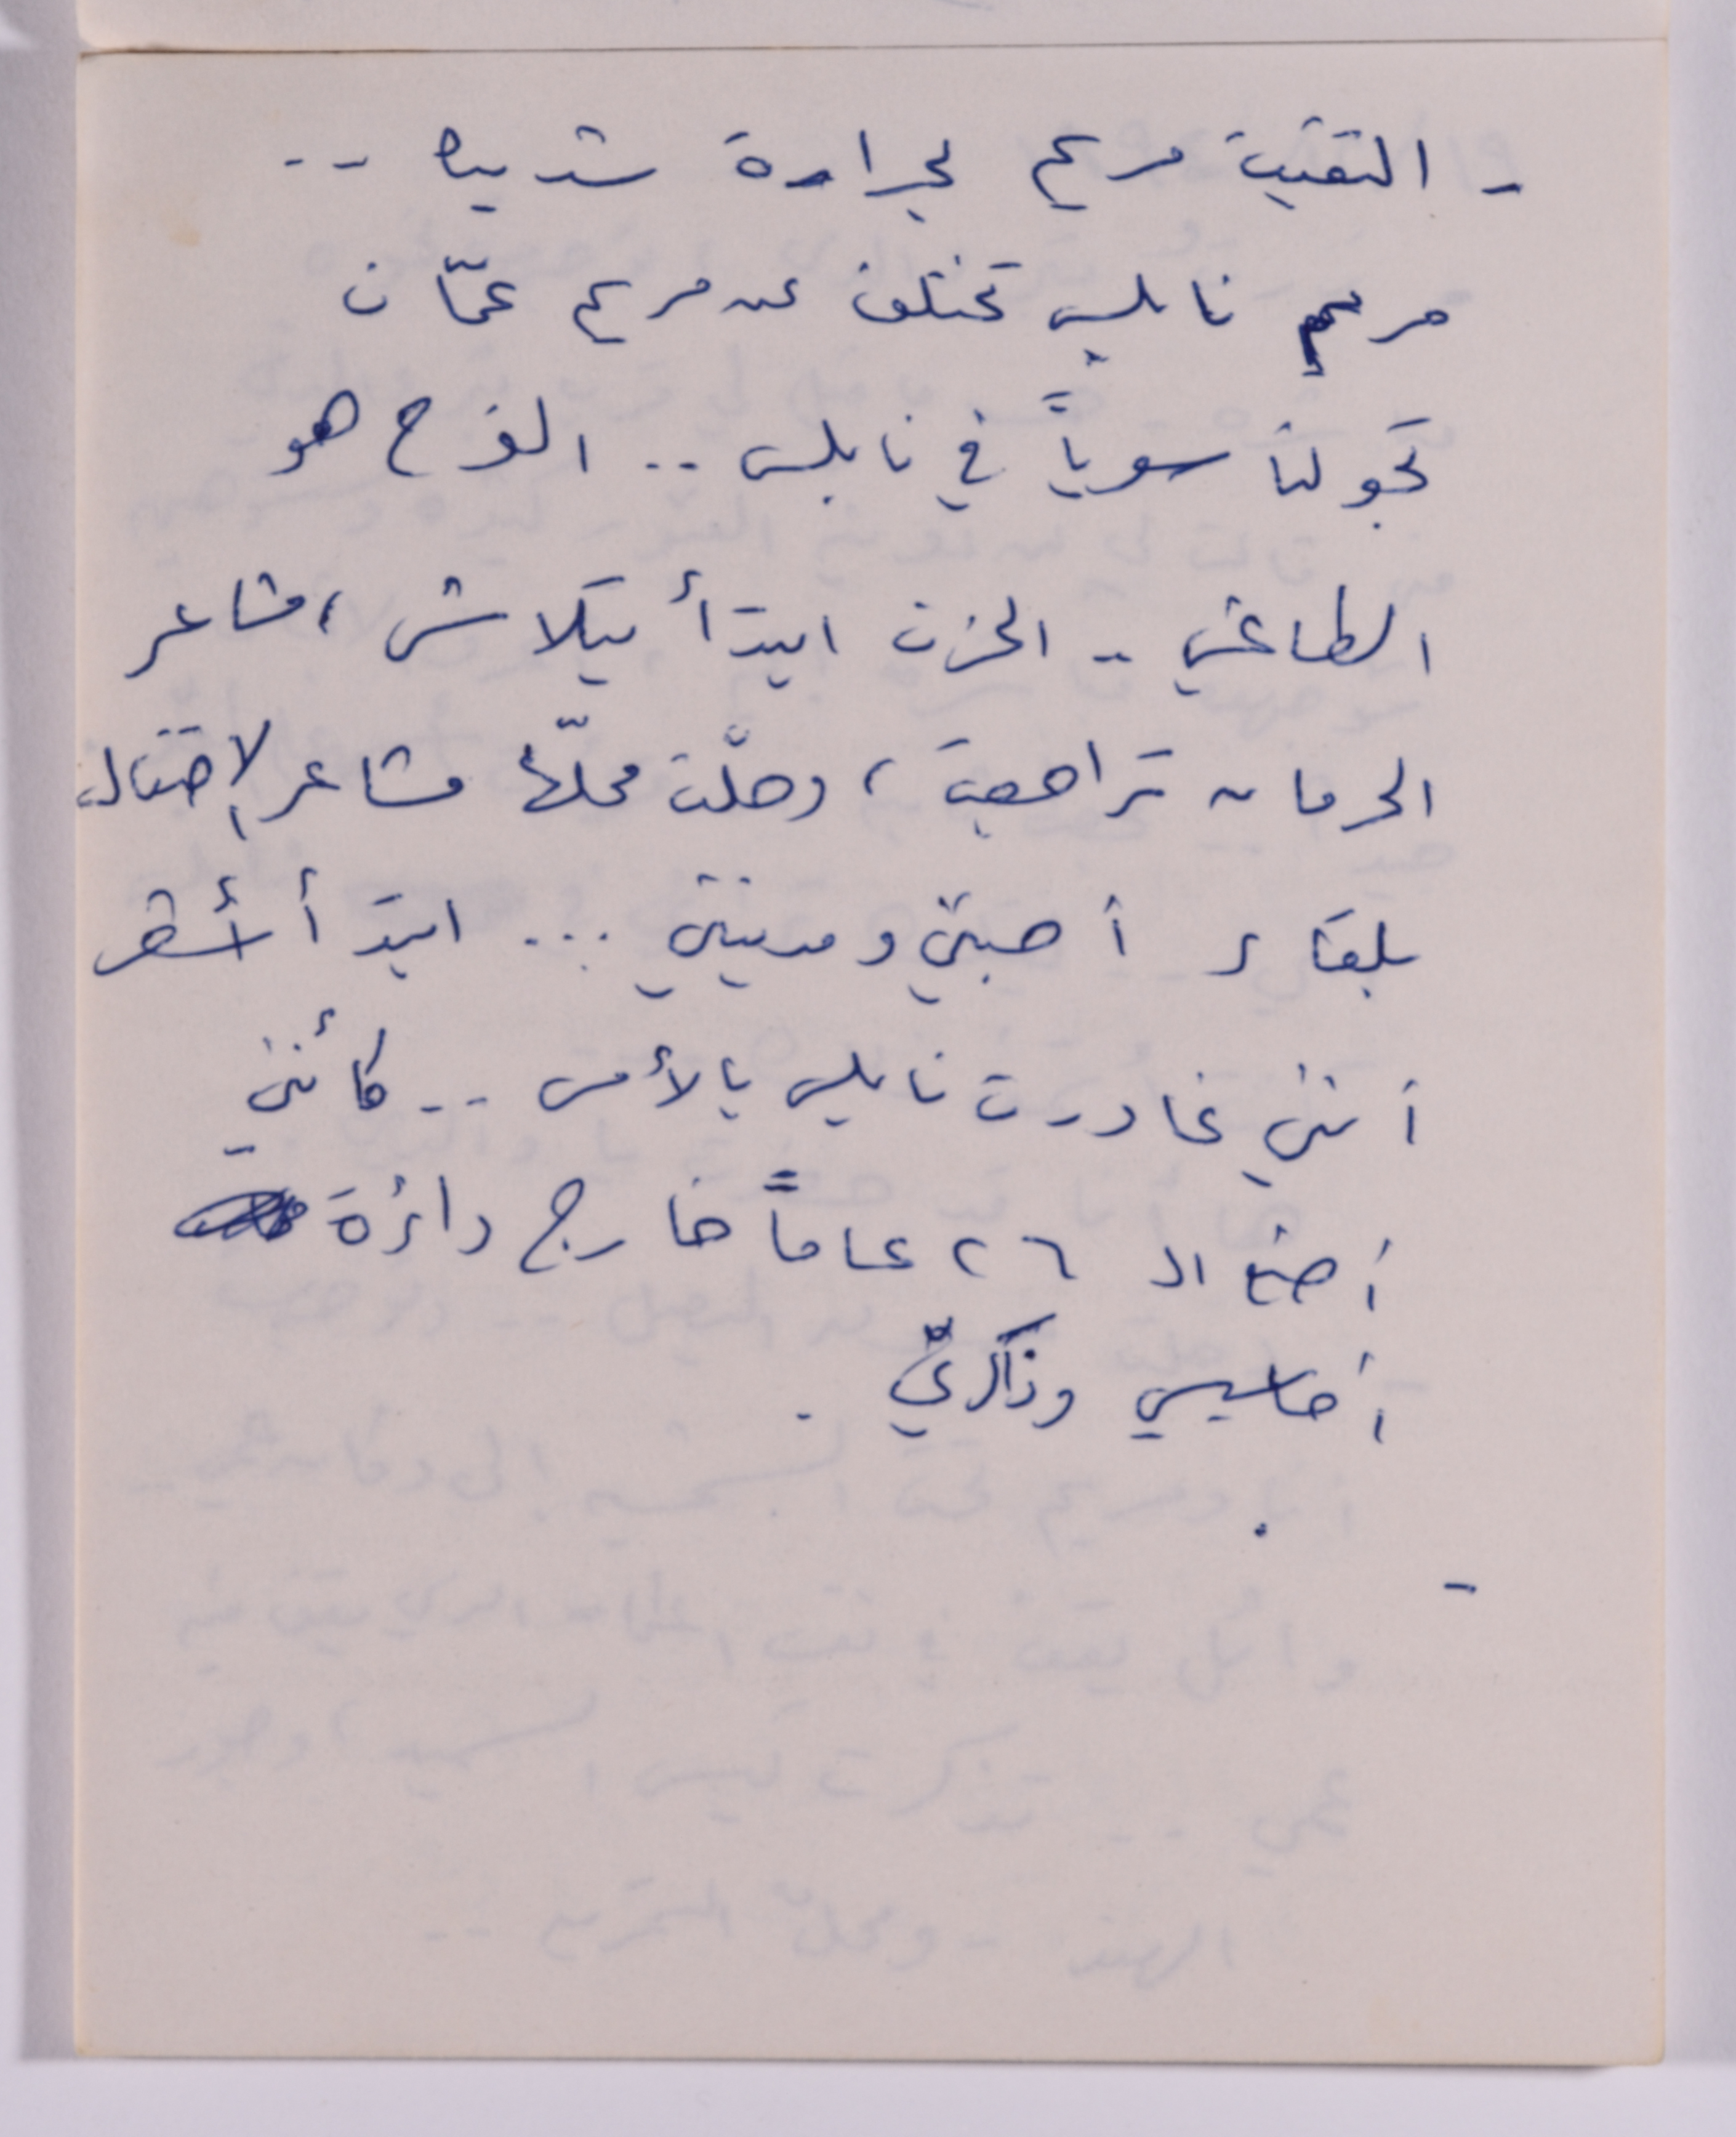 - التقيت مريم بحرارة شديدة ..
مريم نابلس تختلف عن مريم عمّان
تجولنا سوياً في نابلس .. الفرح هو
الطاغي .. الحزن ابتدأ يتلاشى ، مشاعر
الحرمان تراجعت ، وحلّت محلّها مشاعر الاحتفال
بلقاء أحبتي ومدينتي ... ابتدأ أشعر
أنني غادرت نابلس بالأمس .. كأنني
أضع الـ ٢٦ عاماً خارج دائرة
أحاسيسي وذاكرتي .
-